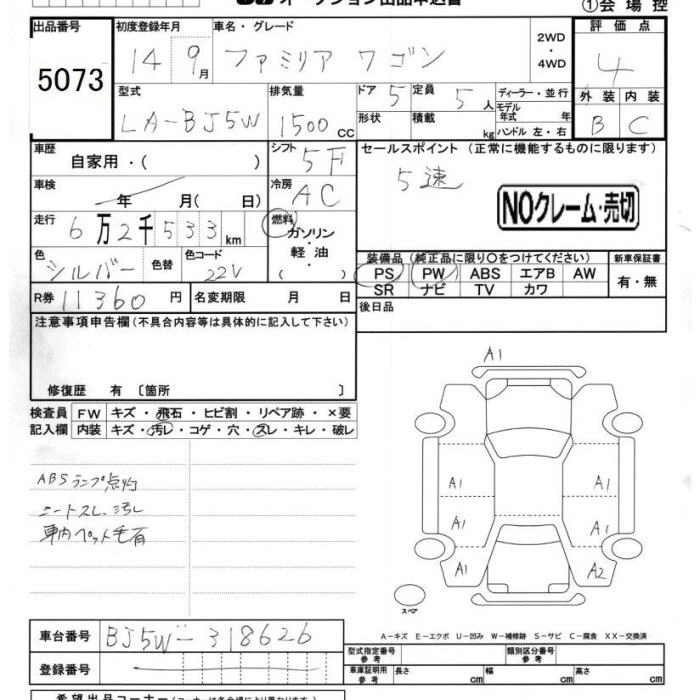 オークション出品申込書
①会場控
出品番号 5073
初度登録年月 14 9月
車名・グレード ファミリア ワゴン
2WD・4WD
評価点 4
外装 B 内装 C
型式 LA-BJ5W
排気量 1500 CC
ドア 5 定員 5人
形状 積載 kg
ディーラー・並行
モデル年式 年
ハンドル 左・右
車歴 自家用・( )
シフト 5F
車検 年 月( 日)
冷房 AC
走行 6万2千533km
燃料 ガソリン・軽油・( )
色 シルバー 色替 色コード 22V
R券 11360円 名変期限 月 日
セールスポイント(正常に機能するものに限ります)
5速
NOクレーム・売切
装備品(純正品に限り○をつけてください)
PS PW ABS エアB AW
SR ナビ TV カワ
新車保証書
有・無
後日品
注意事項申告欄(不具合内容等は具体的に記入して下さい)
修復歴 有〔箇所 〕
検査員記入欄
FW キズ・飛石・ヒビ割・リペア跡・×要
内装 キズ・汚レ・コゲ・穴・スレ・キレ・破レ
ABSランプ点灯
シートスレ、汚レ
車内ペット毛有
A1
A1 A1
A1 A1
A1 A2
スペア
A-キズ E-エクボ U-凹み W-補修跡 S-サビ C-腐食 XX-交換済
車台番号 BJ5W-318626
登録番号
型式指定番号 参考
類別区分番号 参考
車庫証明用 参考 長さ cm 幅 cm 高さ cm
希望出品コーナー